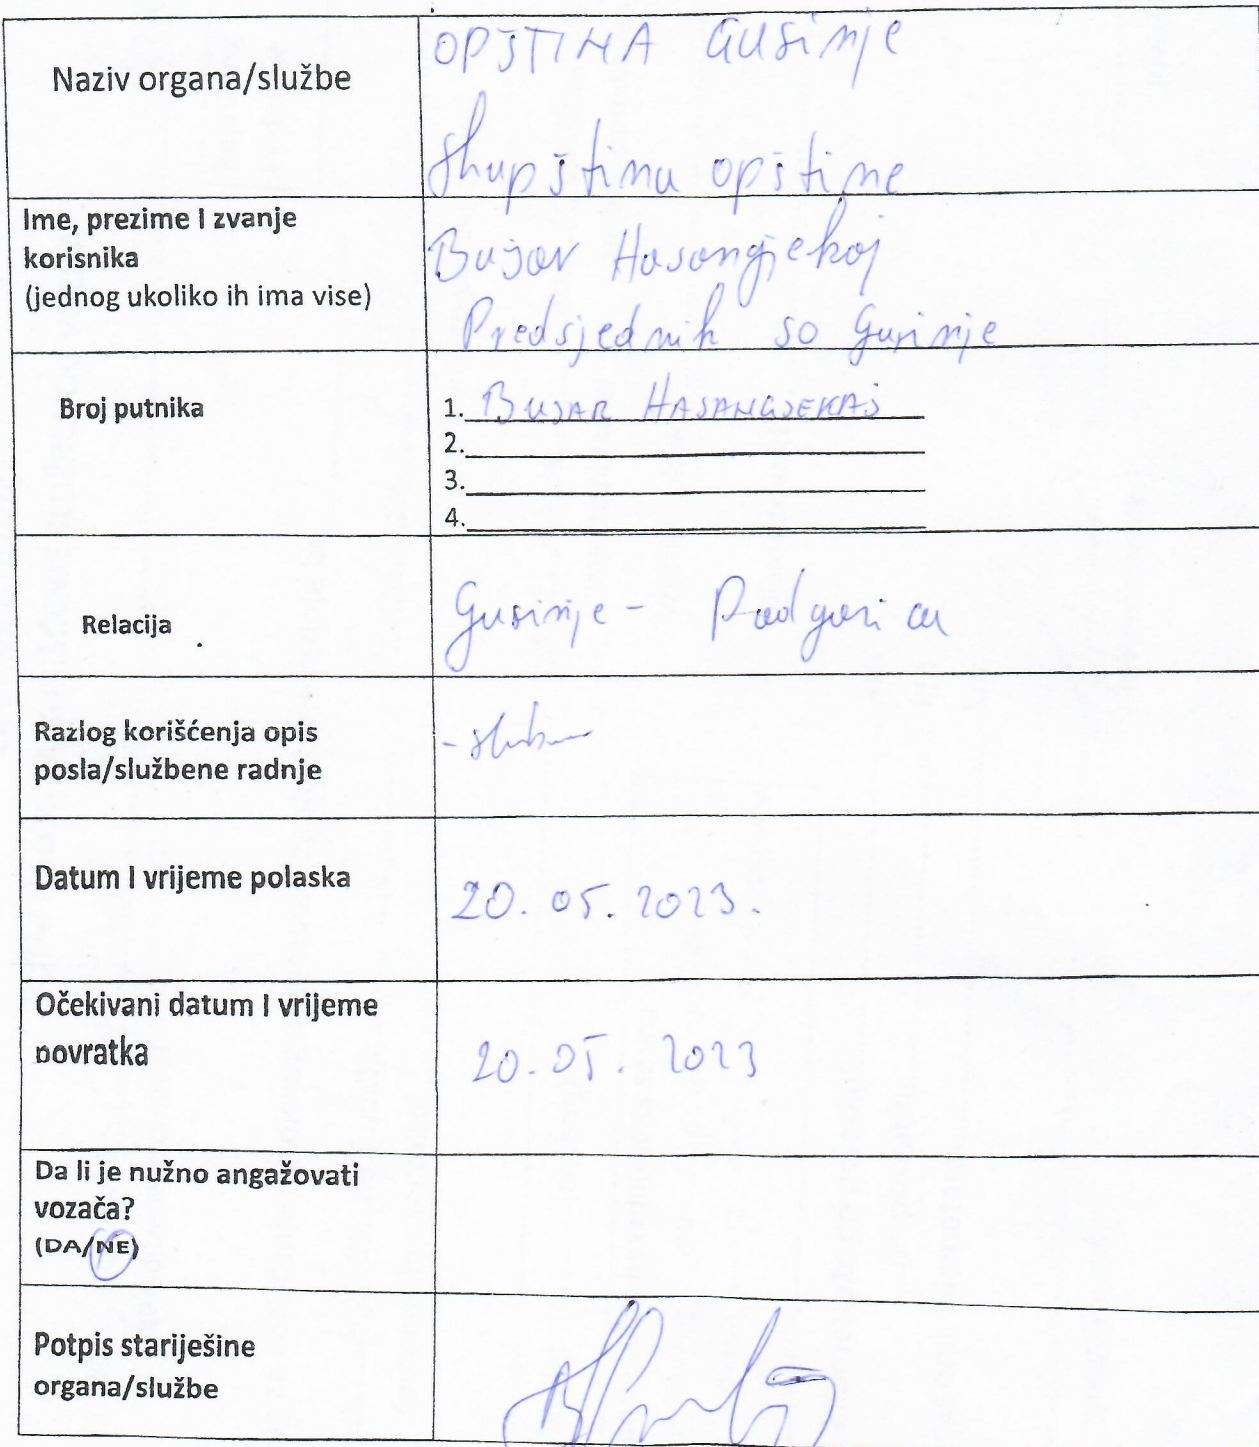 Naziv organa/službe
OPŠTINA Gusinje
Skupština opštine
Ime, prezime I zvanje
korisnika
(jednog ukoliko ih ima vise)
Bujar Hasangjekaj
Predsjednik SO Gusinje
Broj putnika
1. BUJAR HASANGJEKAJ
2.
3.
4.
Relacija
Gusinje - Podgorica
Razlog korišćenja opis
posla/službene radnje
Datum I vrijeme polaska
20. 05. 2023.
Očekivani datum I vrijeme
povratka
20. 05. 2023
Da li je nužno angažovati
vozača?
(DA/NE)
Potpis starješine
organa/službe